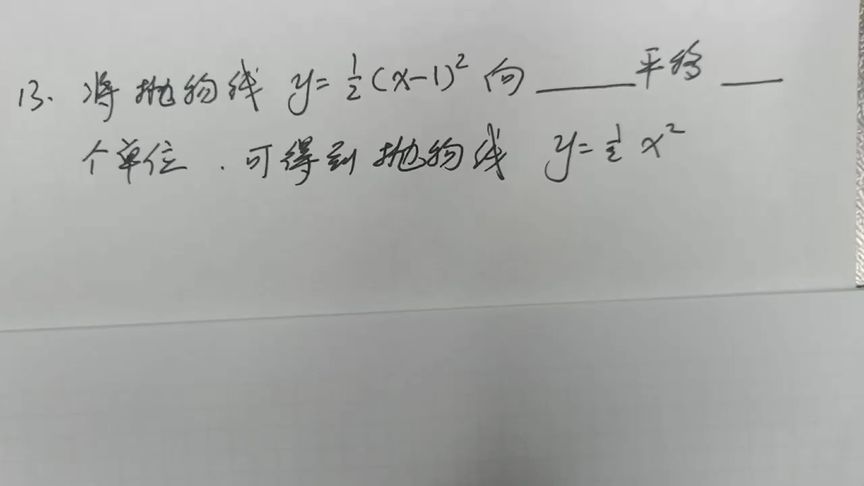 13. 将抛物线 y=½(x-1)² 向 ____平移 ___
个单位.可得到抛物线 y=½x²